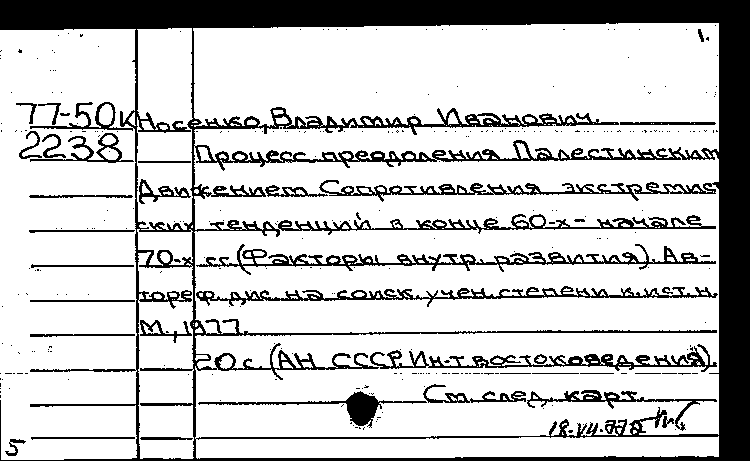 1.
77-50к Носенко, Владимир Иванович.
2238 Процесс преодоления Палестинским
Движением Сопротивления экстремис
ских тенденций в конце 60-х - начале
70-х гг. (Факторы внутр. развития). Ав-
тореф. дис. на соиск. учен. степени к. ист. н.
М., 1977.
20 с. (АН СССР. Ин-т востоковедения).
См. след. карт.
5